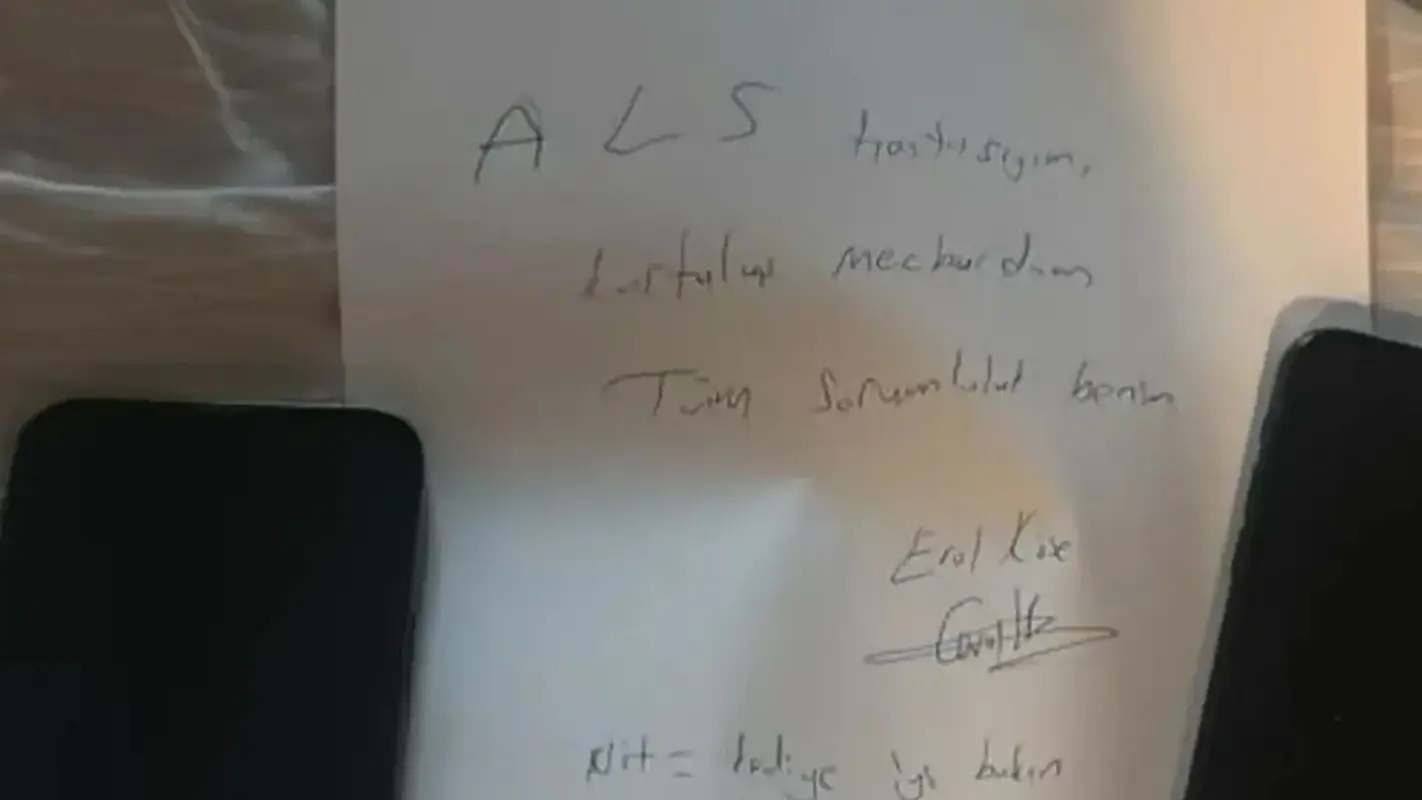 A L S hastasıyım,
kurtuluş mecburdum
Tüm sorumluluk benim
Erol Köse
Not = kediye iyi bakın